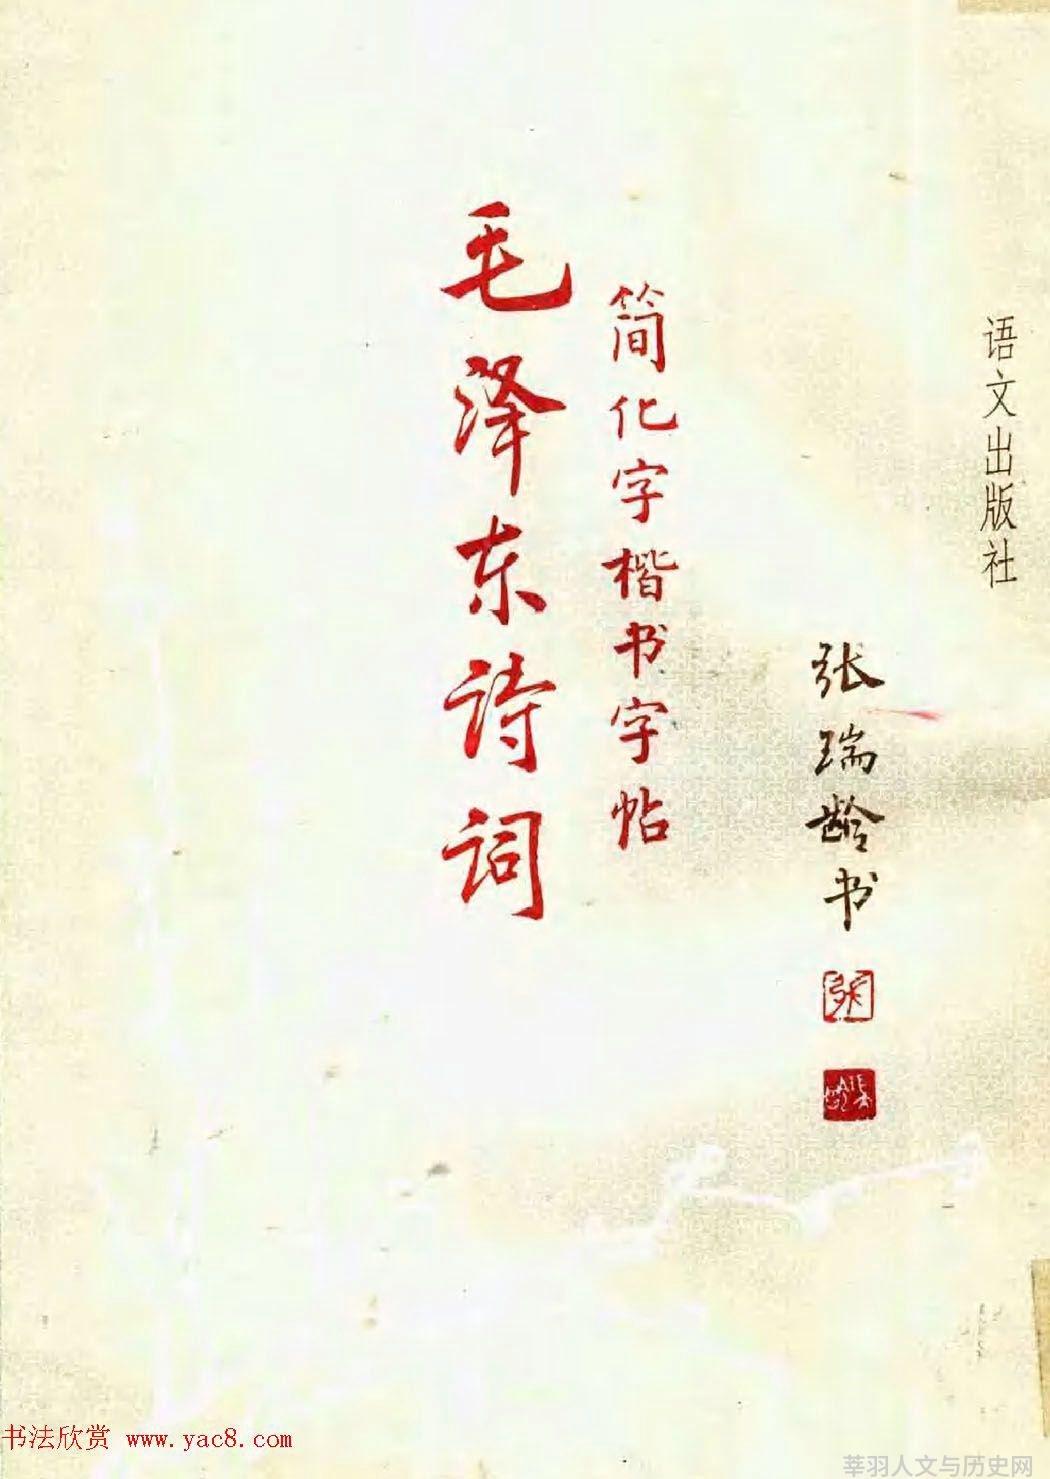 语文出版社
张瑞龄书
简化字楷书字帖
毛泽东诗词
书法欣赏 www.yac8.com
莘羽人文与历史网